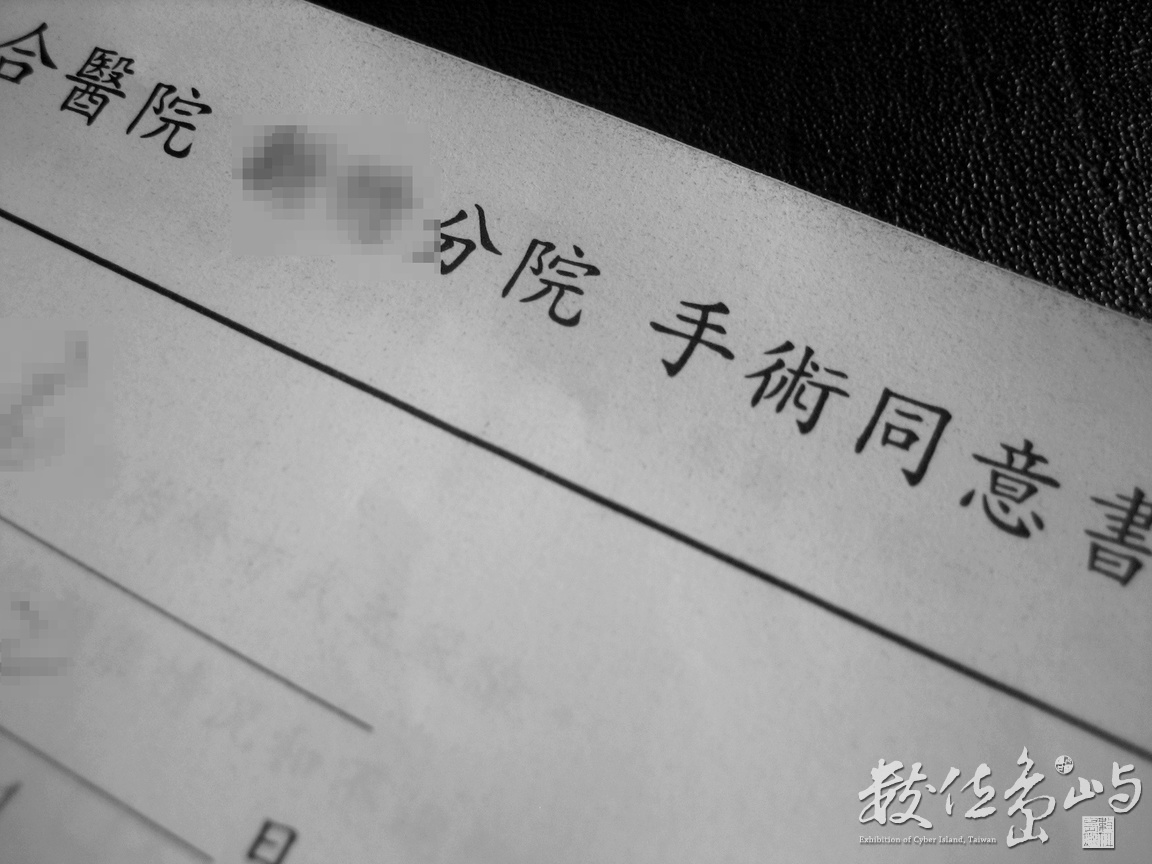 合醫院 分院 手術同意書
日
數位島嶼
Exhibition of Cyber Island, Taiwan